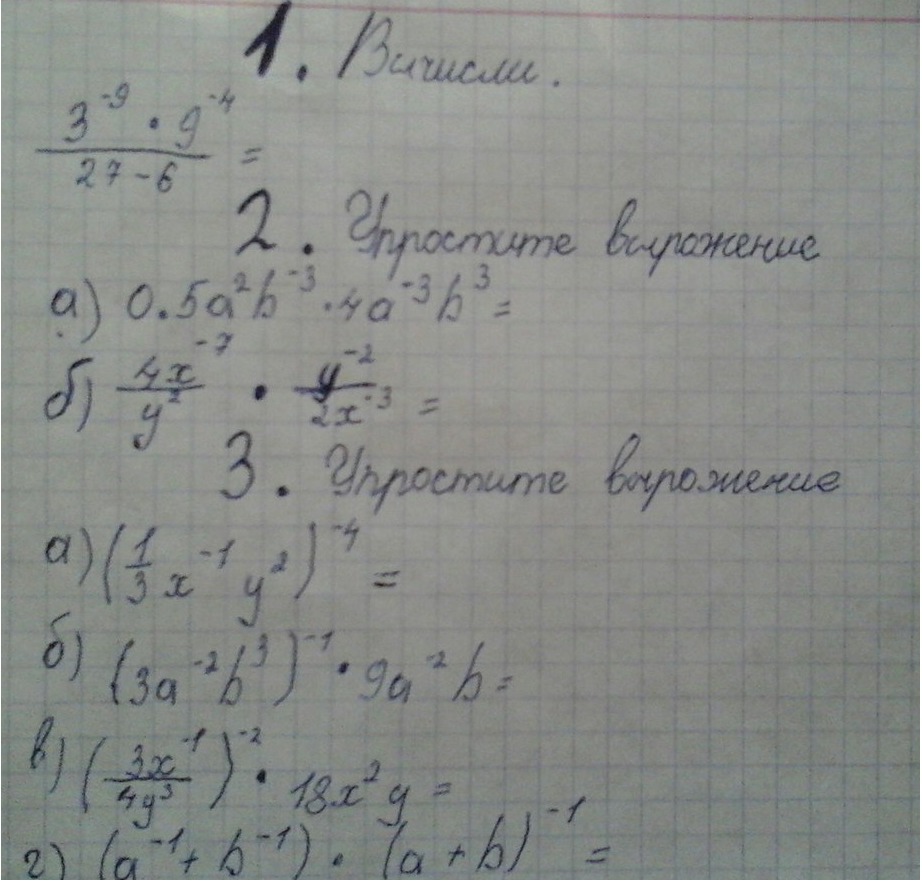 1. Вычисли.
3⁻⁹ · 9⁻⁴ / 27 - 6 =
2. Упростите вырожение
а) 0.5a²b⁻³ · 4a⁻³b³ =
б) 4x⁻⁷ / y² · y⁻² / 2x⁻³ =
3. Упростите вырожение
а) (1/3 x⁻¹ y²)⁻⁴ =
б) (3a⁻²b³)⁻¹ · 9a⁻²b =
в) (3x⁻¹ / 4y³)⁻² · 18x²y =
г) (a⁻¹ + b⁻¹) · (a + b)⁻¹ =